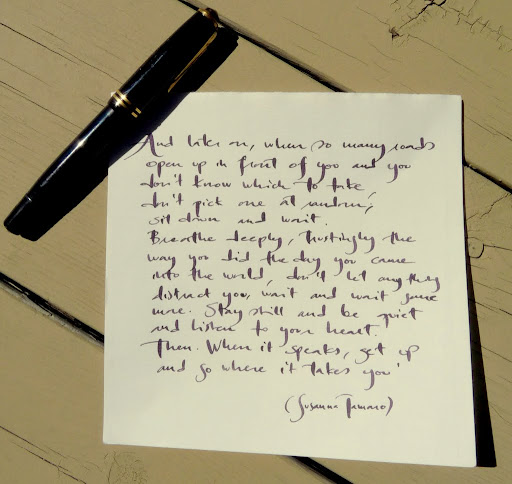 And later on, when so many roads
open up in front of you and you
don't know which to take,
don't pick one at random;
sit down and wait.
Breathe deeply, trustingly the
way you did the day you came
into the world, don't let anything
distract you, wait and wait some
more. Stay still and be quiet
and listen to your heart.
Then. When it speaks, get up
and go where it takes you'
(Susanna Tamaro)